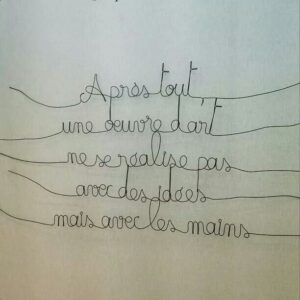 Après tout
une oeuvre d'art
ne se réalise pas
avec des idées
mais avec les mains